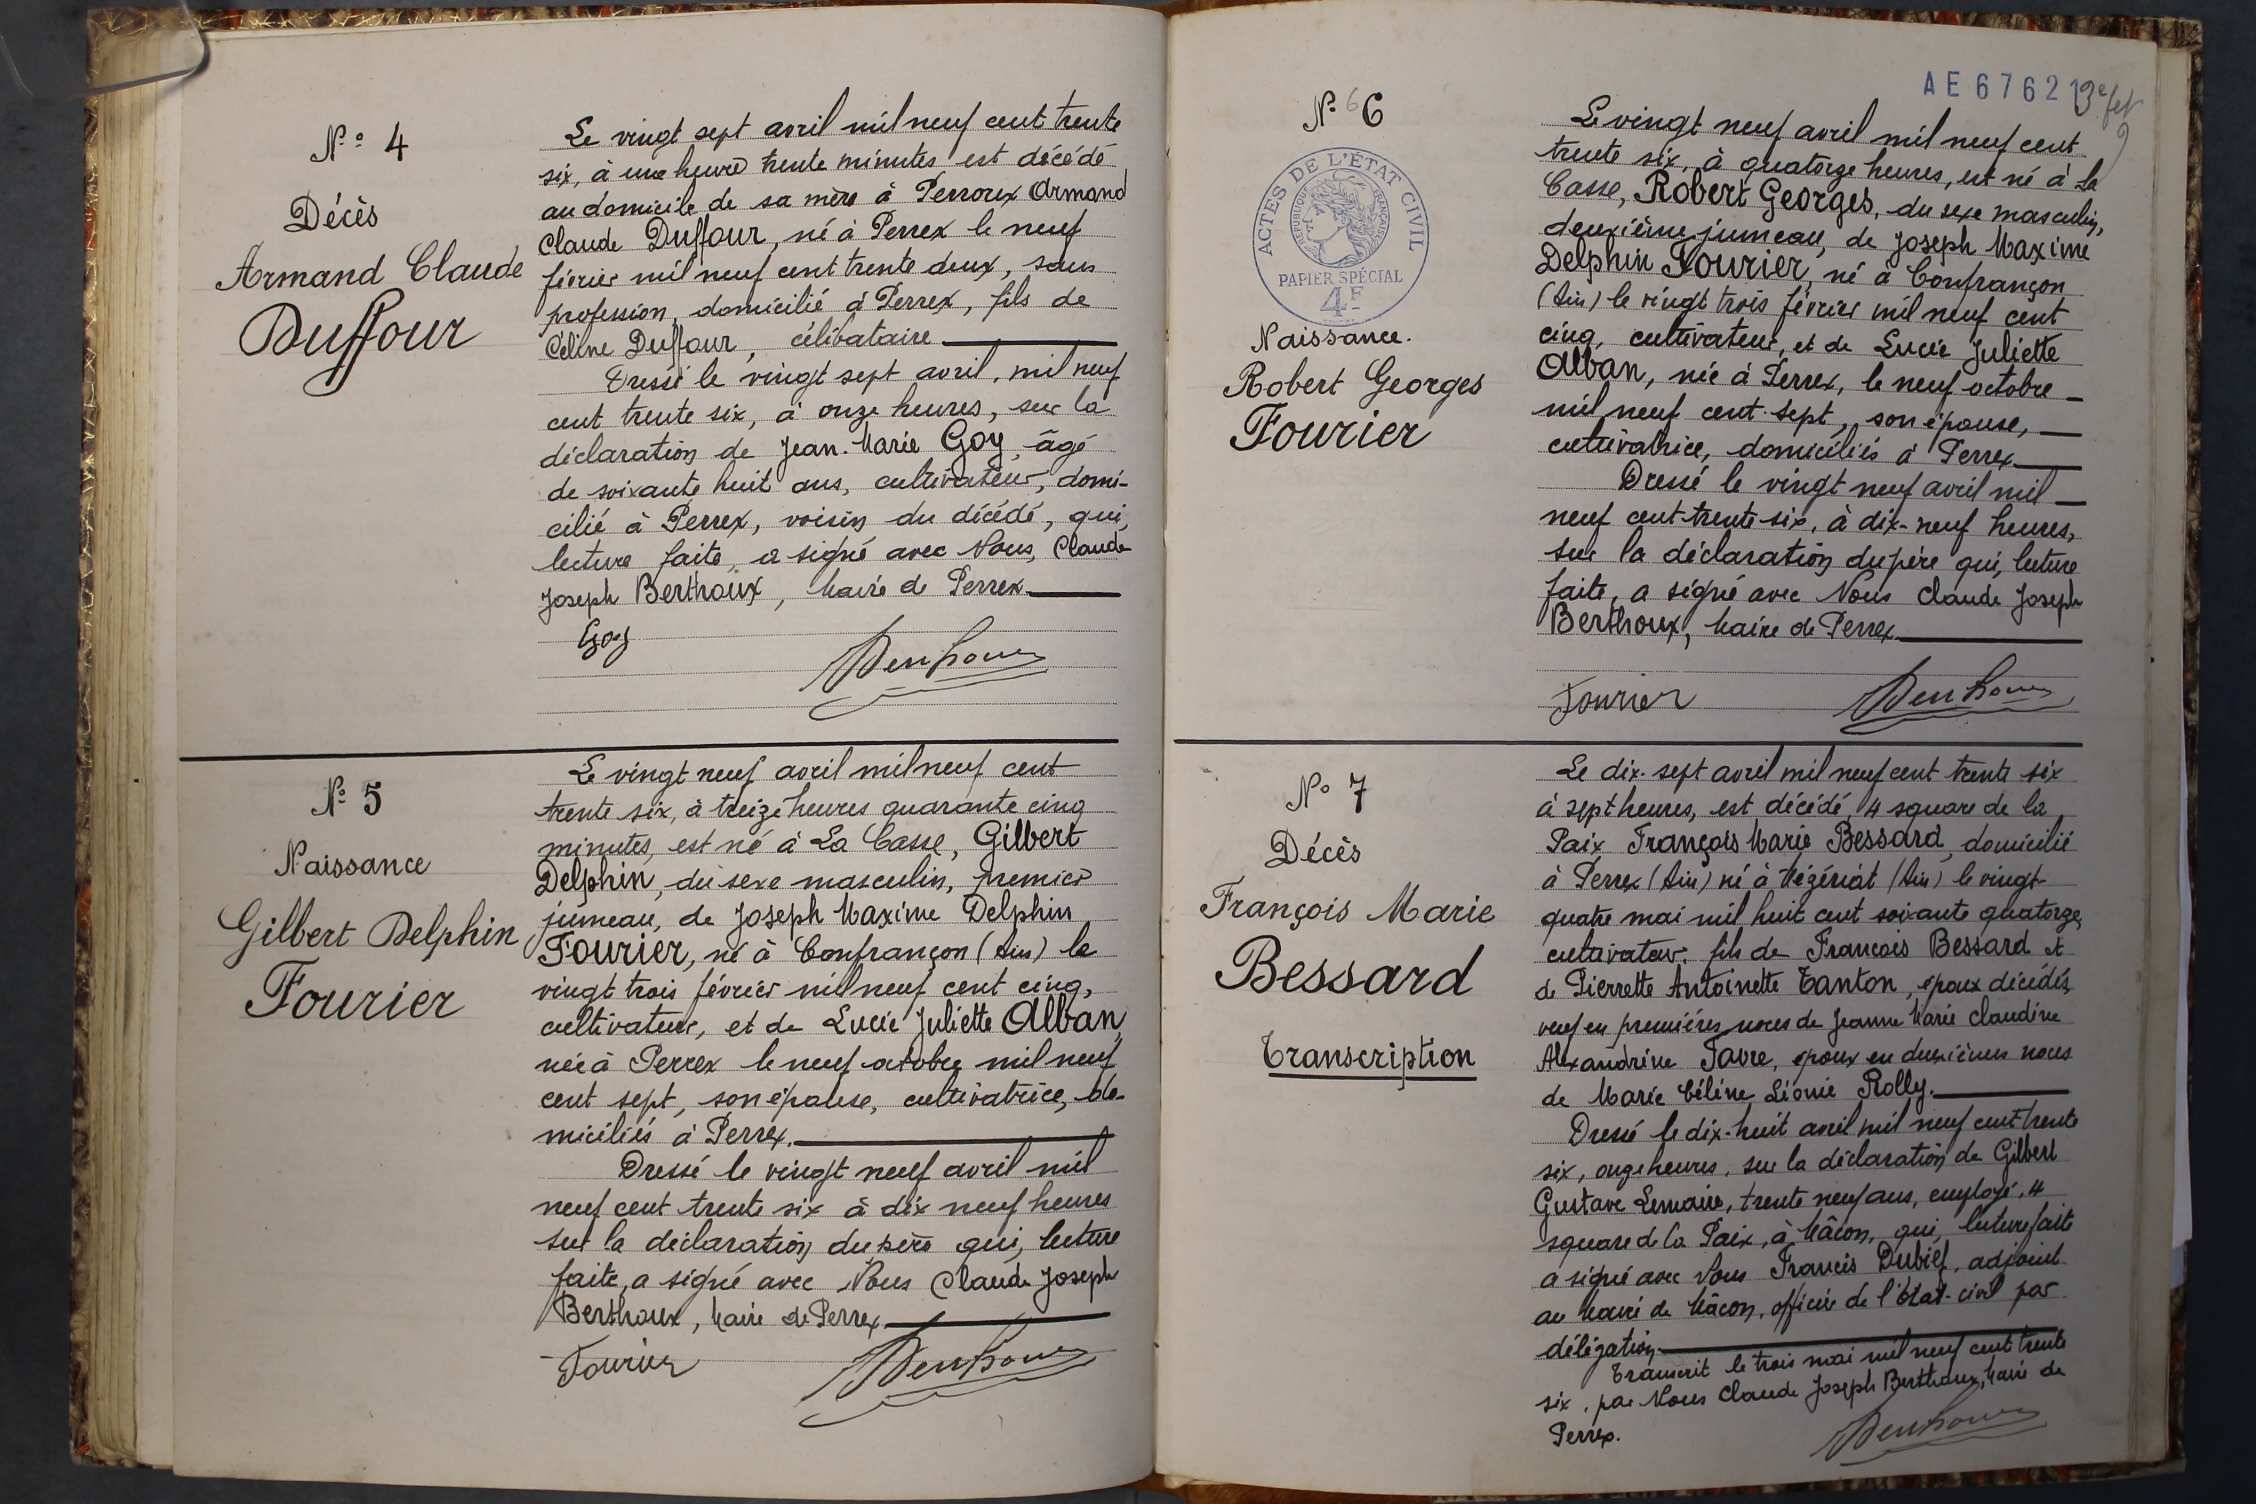 N° 4
Décès
Armand Claude
Duffour
Le vingt sept avril mil neuf cent trente
six, à une heure trente minutes est décédé
au domicile de sa mère à Perroux Armand
Claude Duffour, né à Perrex le neuf
février mil neuf cent trente deux, sans
profession, domicilié à Perrex, fils de
Céline Duffour, célibataire
Dressé le vingt sept avril, mil neuf
cent trente six, à onze heures, sur la
déclaration de Jean-Marie Goy, âgé
de soixante huit ans, cultivateur, domi-
cilié à Perrex, voisin du décédé, qui,
lecture faite, a signé avec Nous, Claude
Joseph Berthoux, Maire de Perrex
Goy
Berthoux
N° 5
Naissance
Gilbert Delphin
Fourier
Le vingt neuf avril mil neuf cent
trente six, à treize heures quarante cinq
minutes, est né à La Casse, Gilbert
Delphin, du sexe masculin, premier
jumeau, de Joseph Maxime Delphin
Fourier, né à Confrançon (Ain) le
vingt trois février mil neuf cent cinq,
cultivateur, et de Lucie Juliette Alban,
née à Perrex le neuf octobre mil neuf
cent sept, son épouse, cultivatrice, do-
miciliés à Perrex.
Dressé le vingt neuf avril mil
neuf cent trente six à dix neuf heures
sur la déclaration du père qui, lecture
faite, a signé avec Nous Claude Joseph
Berthoux, Maire de Perrex
Fourier
Berthoux
AE 6762 13e fet
9
N° 6 6
ACTES DE L'ÉTAT CIVIL
RÉPUBLIQUE FRANÇAISE
PAPIER SPÉCIAL
4F
Naissance.
Robert Georges
Fourier
Le vingt neuf avril mil neuf cent
trente six, à quatorze heures, est né à La
Casse, Robert Georges, du sexe masculin,
deuxième jumeau, de Joseph Maxime
Delphin Fourier, né à Confrançon
(Ain) le vingt trois février mil neuf cent
cinq, cultivateur, et de Lucie Juliette
Alban, née à Perrex, le neuf octobre
mil neuf cent sept, son épouse,
cultivatrice, domiciliés à Perrex
Dressé le vingt neuf avril mil
neuf cent trente six, à dix-neuf heures,
sur la déclaration du père qui, lecture
faite, a signé avec Nous Claude Joseph
Berthoux, Maire de Perrex
Fourier
Berthoux
N° 7
Décès
François Marie
Bessard
Transcription
Le dix-sept avril mil neuf cent trente six
à sept heures, est décédé, 4 square de la
Paix François Marie Bessard, domicilié
à Perrex (Ain) né à Mézériat (Ain) le vingt-
quatre mai mil huit cent soixante quatorze,
cultivateur, fils de Francois Bessard et
de Pierrette Antoinette Tanton, époux décédés,
veuf en premières noces de Jeanne Marie Claudine
Alexandrine Favre, époux en deuxièmes noces
de Marie Céline Léonie Rolly.
Dressé le dix-huit avril mil neuf cent trente
six, onze heures, sur la déclaration de Gilbert
Gustave Lemaire, trente neuf ans, employé, 4
square de la Paix, à Mâcon, qui, lecture faite
a signé avec Nous Francis Dubief, adjoint
au Maire de Mâcon, officier de l'état-civil par
délégation
Transcrit le trois mai mil neuf cent trente
six, par Nous Claude Joseph Berthoux, Maire de
Perrex.
Berthoux